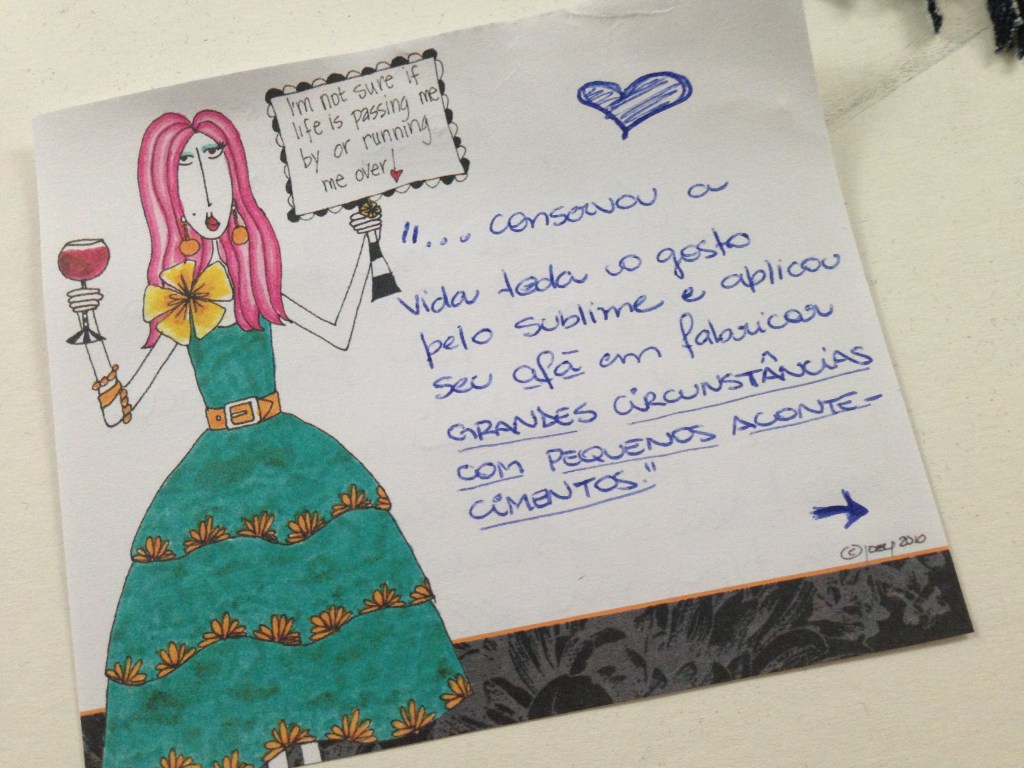 I'm not sure if
life is passing me
by or running
me over!
"... conservou a
vida toda o gosto
pelo sublime e aplicou
seu afã em fabricar
GRANDES CIRCUNSTÂNCIAS
COM PEQUENOS ACONTE-
CIMENTOS."
© joey 2010